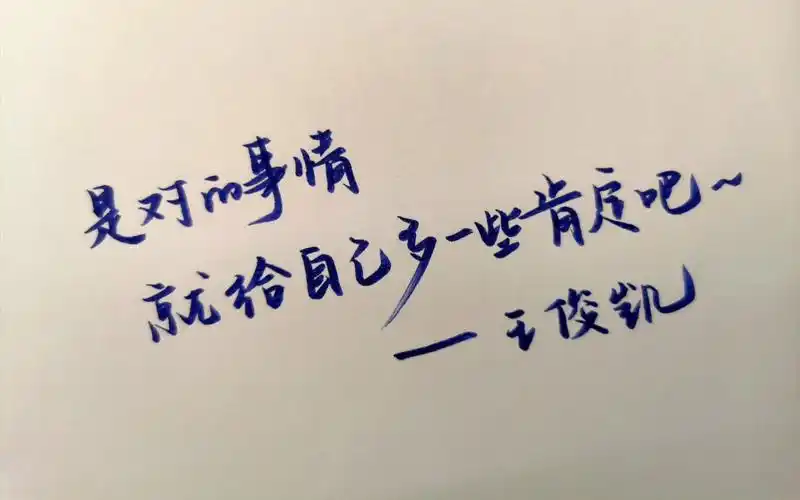 是对的事情
就给自己多一些肯定吧~
——王俊凯